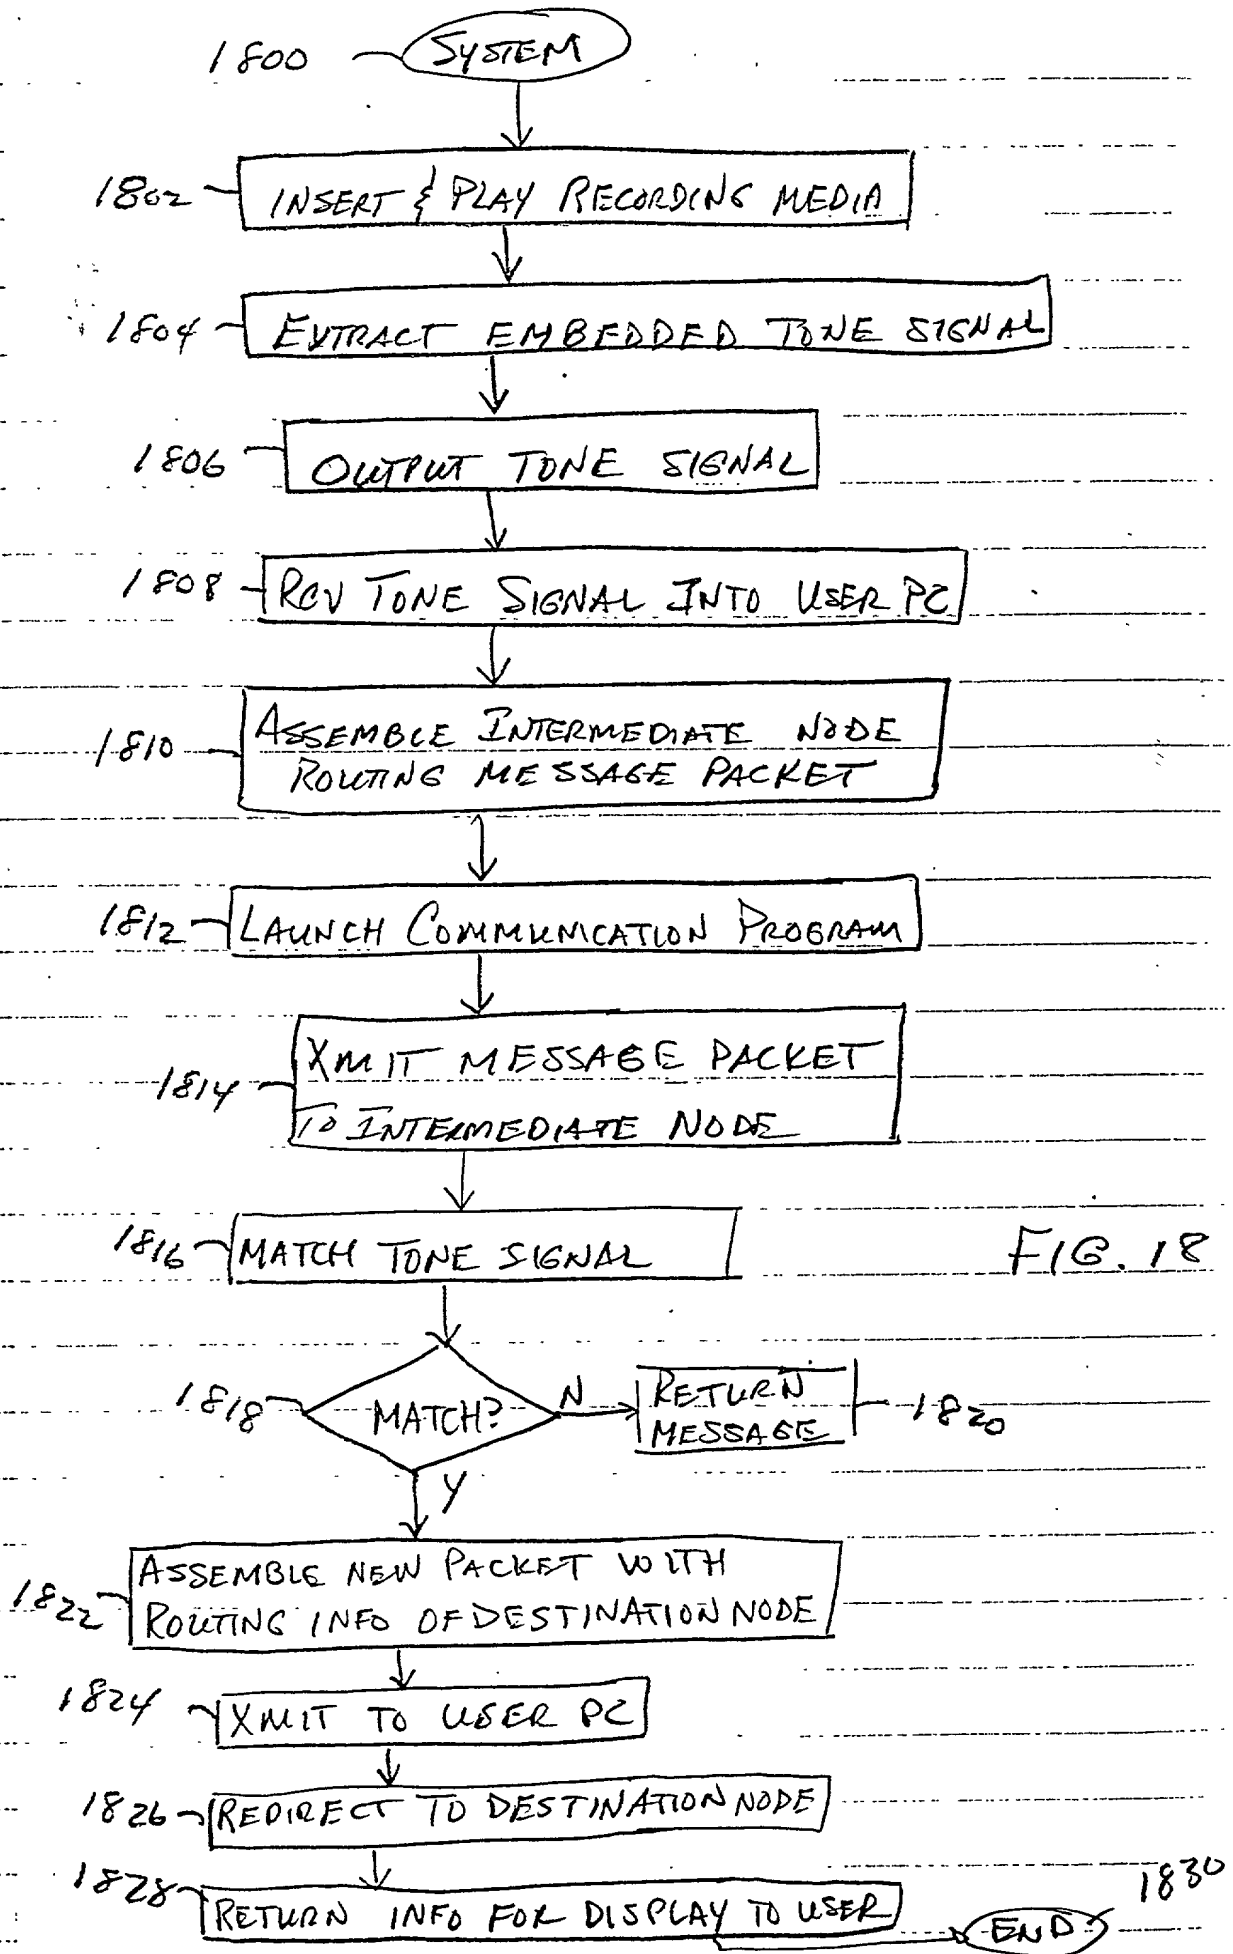 1800 SYSTEM
1802 INSERT & PLAY RECORDING MEDIA
1804 EXTRACT EMBEDDED TONE SIGNAL
1806 OUTPUT TONE SIGNAL
1808 RCV TONE SIGNAL INTO USER PC
1810 ASSEMBLE INTERMEDIATE NODE
ROUTING MESSAGE PACKET
1812 LAUNCH COMMUNICATION PROGRAM
1814 XMIT MESSAGE PACKET
TO INTERMEDIATE NODE
1816 MATCH TONE SIGNAL
FIG. 18
1818 MATCH? N RETURN MESSAGE 1820
Y
1822 ASSEMBLE NEW PACKET WITH
ROUTING INFO OF DESTINATION NODE
1824 XMIT TO USER PC
1826 REDIRECT TO DESTINATION NODE
1828 RETURN INFO FOR DISPLAY TO USER
END 1830